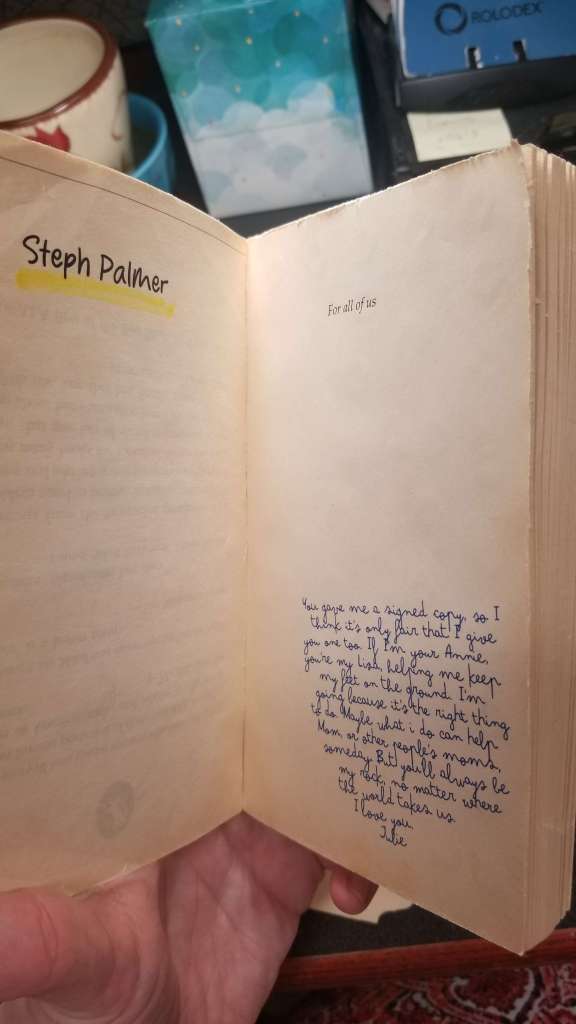 ROLODEX
Steph Palmer
For all of us
You gave me a signed copy, so I
think it's only fair that I give
you one too. If I'm your Annie,
you're my Liza, helping me keep
my feet on the ground. I'm
going because it's the right thing
to do. Maybe what i do can help
Mom, or other people's moms,
someday. But you'll always be
my rock, no matter where
the world takes us.
I love you,
Julie